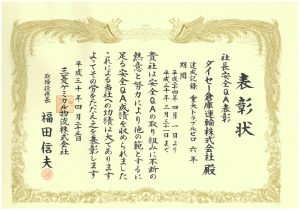 表彰状
社長安全QA表彰
ダイセー倉庫運輸株式会社殿
達成記録 重大トラブルゼロ 六年
期間 平成二十四年四月一日より
平成三十年三月三十一日まで
貴社は安全QAの取り組みに不断の
熱意と努力により他の範とするに
足る安全QA成績を収められました
これによる当社への功績は大であります
よってその労をたたえこれを表彰します
平成三十年四月二十三日
三菱ケミカル物流株式会社
取締役社長 福田信夫